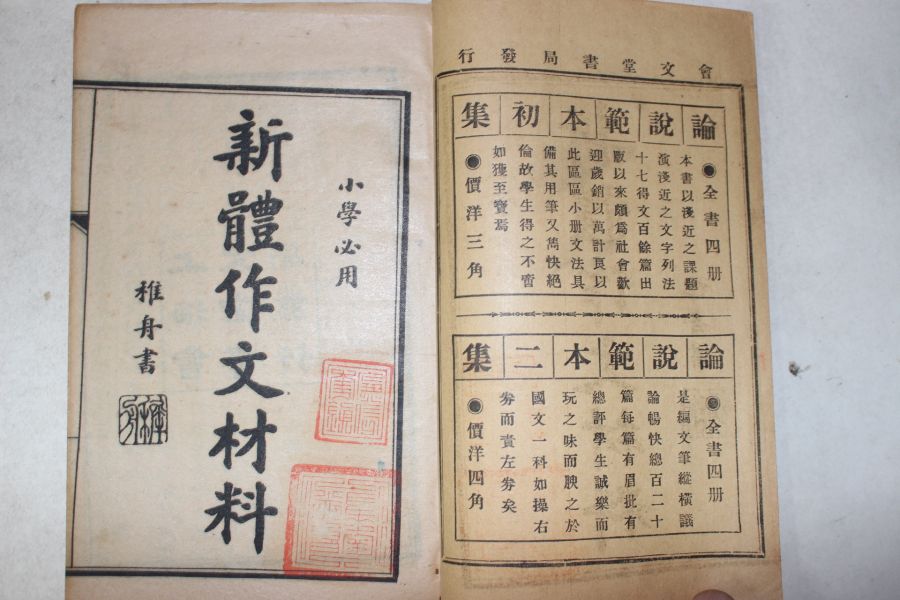 會文堂書局發行
論說範本初集
●全書四册
本書以淺近之課題
演淺近之文字列法
十七得文百餘篇出
版以來頗爲社會歡
迎歲銷以萬計良以
此區區小册文法具
備其用筆又雋快絕
倫故學生得之不啻
如獲至寶焉
●價洋三角
論說範本二集
●全書四册
是編文筆縱橫議
論暢快總百二十
篇每篇有眉批有
總評學生誠樂而
玩之味而腴之於
國文一科如操右
券而責左券矣
●價洋四角
小學必用
新體作文材料
稚舟書